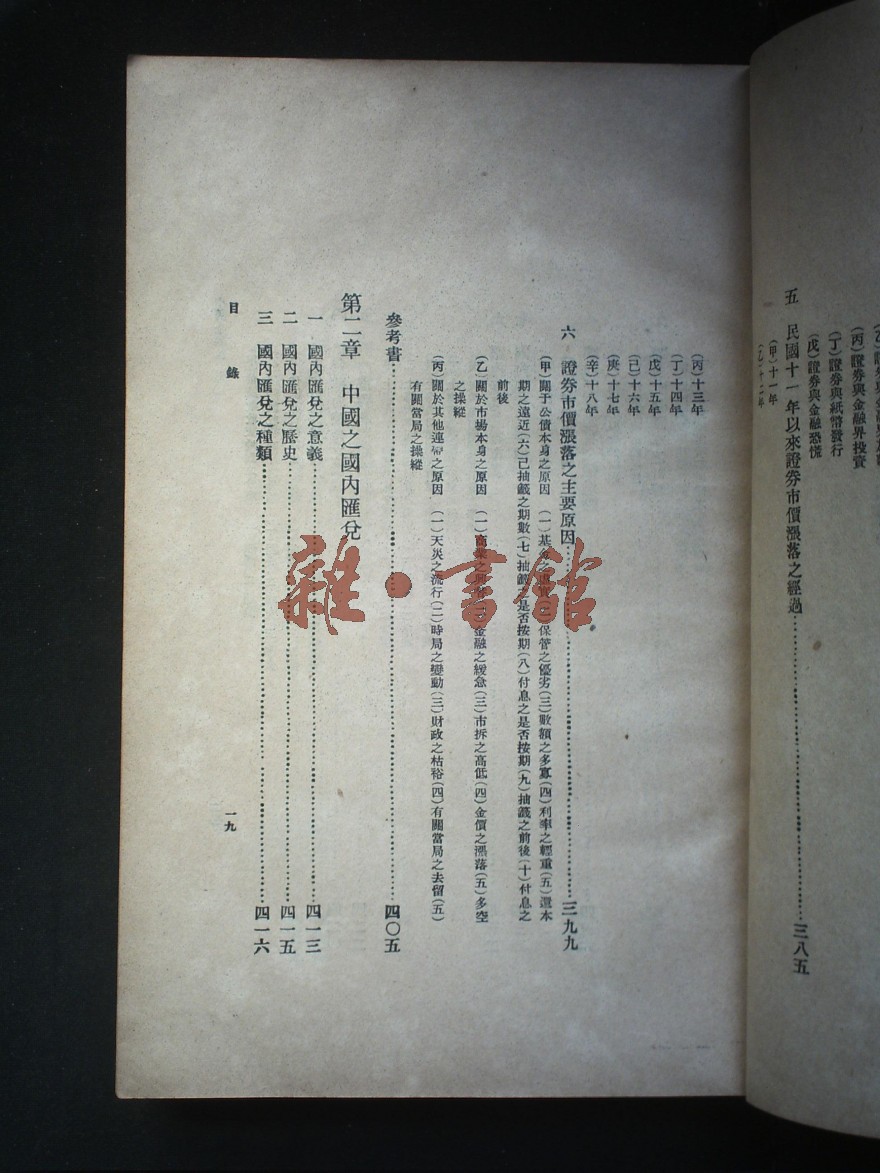 (丙)證券與金融界投資
(丁)證券與紙幣發行
(戊)證券與金融恐慌
五 民國十一年以來證券市價漲落之經過……三八五
(甲)十一年
(乙)十二年
(丙)十三年
(丁)十四年
(戊)十五年
(己)十六年
(庚)十七年
(辛)十八年
六 證券市價漲落之主要原因……三九九
(甲)關于公債本身之原因 (一)基金之 保管之優劣(三)數額之多寡(四)利率之輕重(五)還本
期之遠近(六)已抽籤之期數(七)抽籤之是否按期(八)付息之是否按期(九)抽籤之前後(十)付息之
前後
(乙)關於市場本身之原因 (一)商業之 金融之緩急(三)市拆之高低(四)金價之漲落(五)多空
之操縱
(丙)關於其他連帶之原因 (一)天災之流行(二)時局之變動(三)財政之枯裕(四)有關當局之去留(五)
有關當局之操縱
參考書……四〇五
第二章 中國之國內匯兌
一 國內匯兌之意義……四一三
二 國內匯兌之歷史……四一五
三 國內匯兌之種類……四一六
目錄
一九
雜·書館